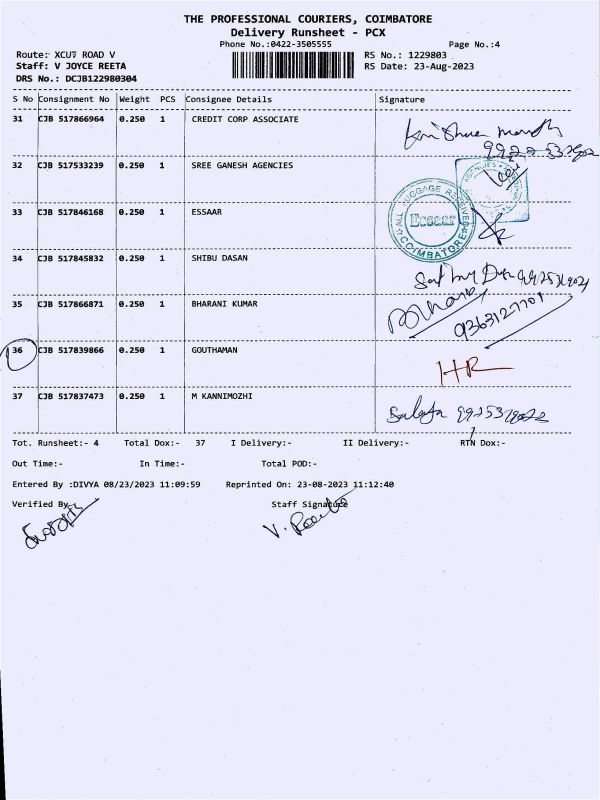 THE PROFESSIONAL COURIERS, COIMBATORE
Delivery Runsheet - PCX
Phone No.:0422-3505555 Page No.:4
Route: XCUT ROAD V RS No.: 1229803
Staff: V JOYCE REETA RS Date: 23-Aug-2023
DRS No.: DCJB122980304
S No Consignment No Weight PCS Consignee Details Signature
31 CJB 517866964 0.250 1 CREDIT CORP ASSOCIATE
32 CJB 517533239 0.250 1 SREE GANESH AGENCIES
33 CJB 517846168 0.250 1 ESSAAR
ALL LUGGAGE RECEIVED
Essaar
COIMBATORE
34 CJB 517845832 0.250 1 SHIBU DASAN
35 CJB 517866871 0.250 1 BHARANI KUMAR
9363127701
36 CJB 517839866 0.250 1 GOUTHAMAN
HR
37 CJB 517837473 0.250 1 M KANNIMOZHI
Tot. Runsheet:- 4 Total Dox:- 37 I Delivery:- II Delivery:- RTN Dox:-
Out Time:- In Time:- Total POD:-
Entered By :DIVYA 08/23/2023 11:09:59 Reprinted On: 23-08-2023 11:12:40
Verified By Staff Signature
V. Reeta